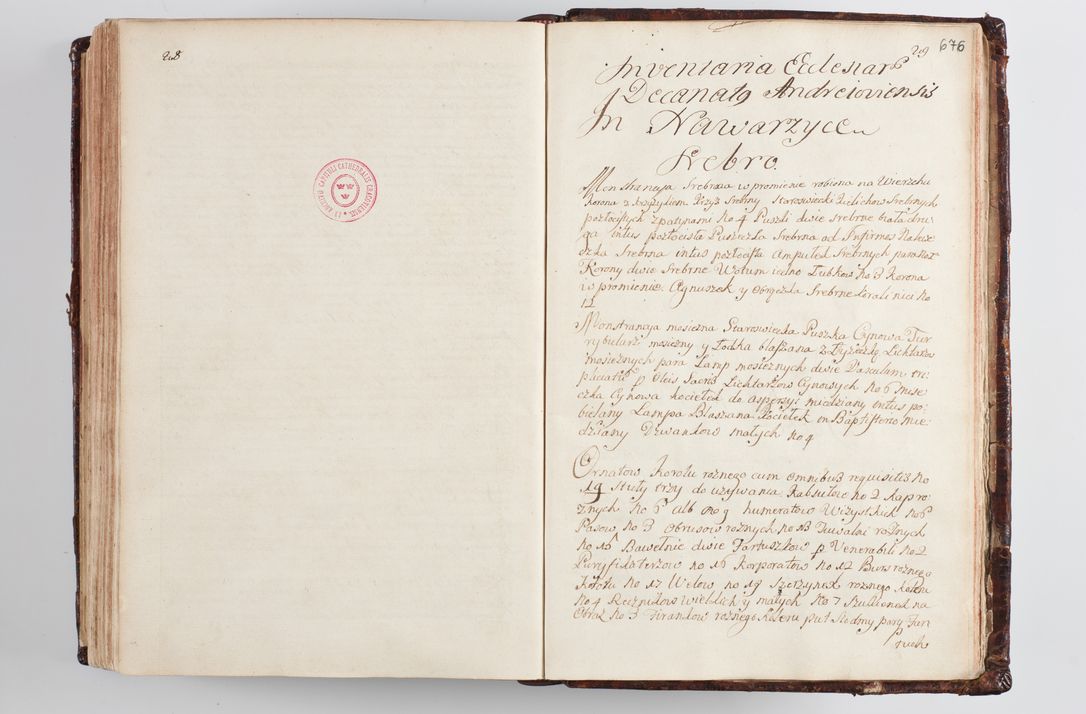 218
EX ARCHIVO CAPITULI CATHEDRALIS CRACOVIENSIS
219 676
Inventaria Ecclesiar
Decanatq Andreioviensis
In Nawarzyce
Srebro
Monstrancya Srebrna w promienie robiona na Wierzchu
korona z krzyżykiem Krzyż Srebrny Staroswiecki Kielichow Srebrnych
pozłocistych z patynami No 4 Puszki dwie srebrne biała dru
ga intus pozłocista Puszeczka Srebrna ad Infirmos
szka Srebrna intus pozłocista Ampułek Srebrnych para
Korony dwie Srebrne Wotum iedno Ząbkow No 3 Korona
w promienie Agnuszek y Obrączka Srebrne No
12
Monstrancya mosiezna Staroswiecka Puszka Cynowa Tur
rybularz mosiezny y Łodka blaszana z Łyżeczką Lichtarzow
mosieznych para Lamp mosieznych dwie Vasculum tri
p Oleis Sacris Lichtarzow Cynowych No 6 Mise
czka Cynowa kociełek do aspersyi miedziany intus po
bielany Lampa Blaszana Kociełek in Baptisterio mie
dziany Dzwonkow małych No 4
Ornatow koloru roznego cum omnibus requisitis No
19 Stuły trzy do uzywania No 2 Kap ro
znych No 6 Alb No 9 humerałow Wszystkich No 6
Pasow No 3 Obrusow roznych No 13 Tuwalni roznych
No 15 Bawełnic dwie Fartuszkow p Venerabili No 2
Puryfikaterzow No 16 Korporałow No 12 Burs roznego
koloru No 17 Welow No 19 roznego koloru
No 4 Ręcznikow wielkich y małych No 7 Sukienek na
Obraz No 3 Firandow roznego koloru puł siodmy pary Fan